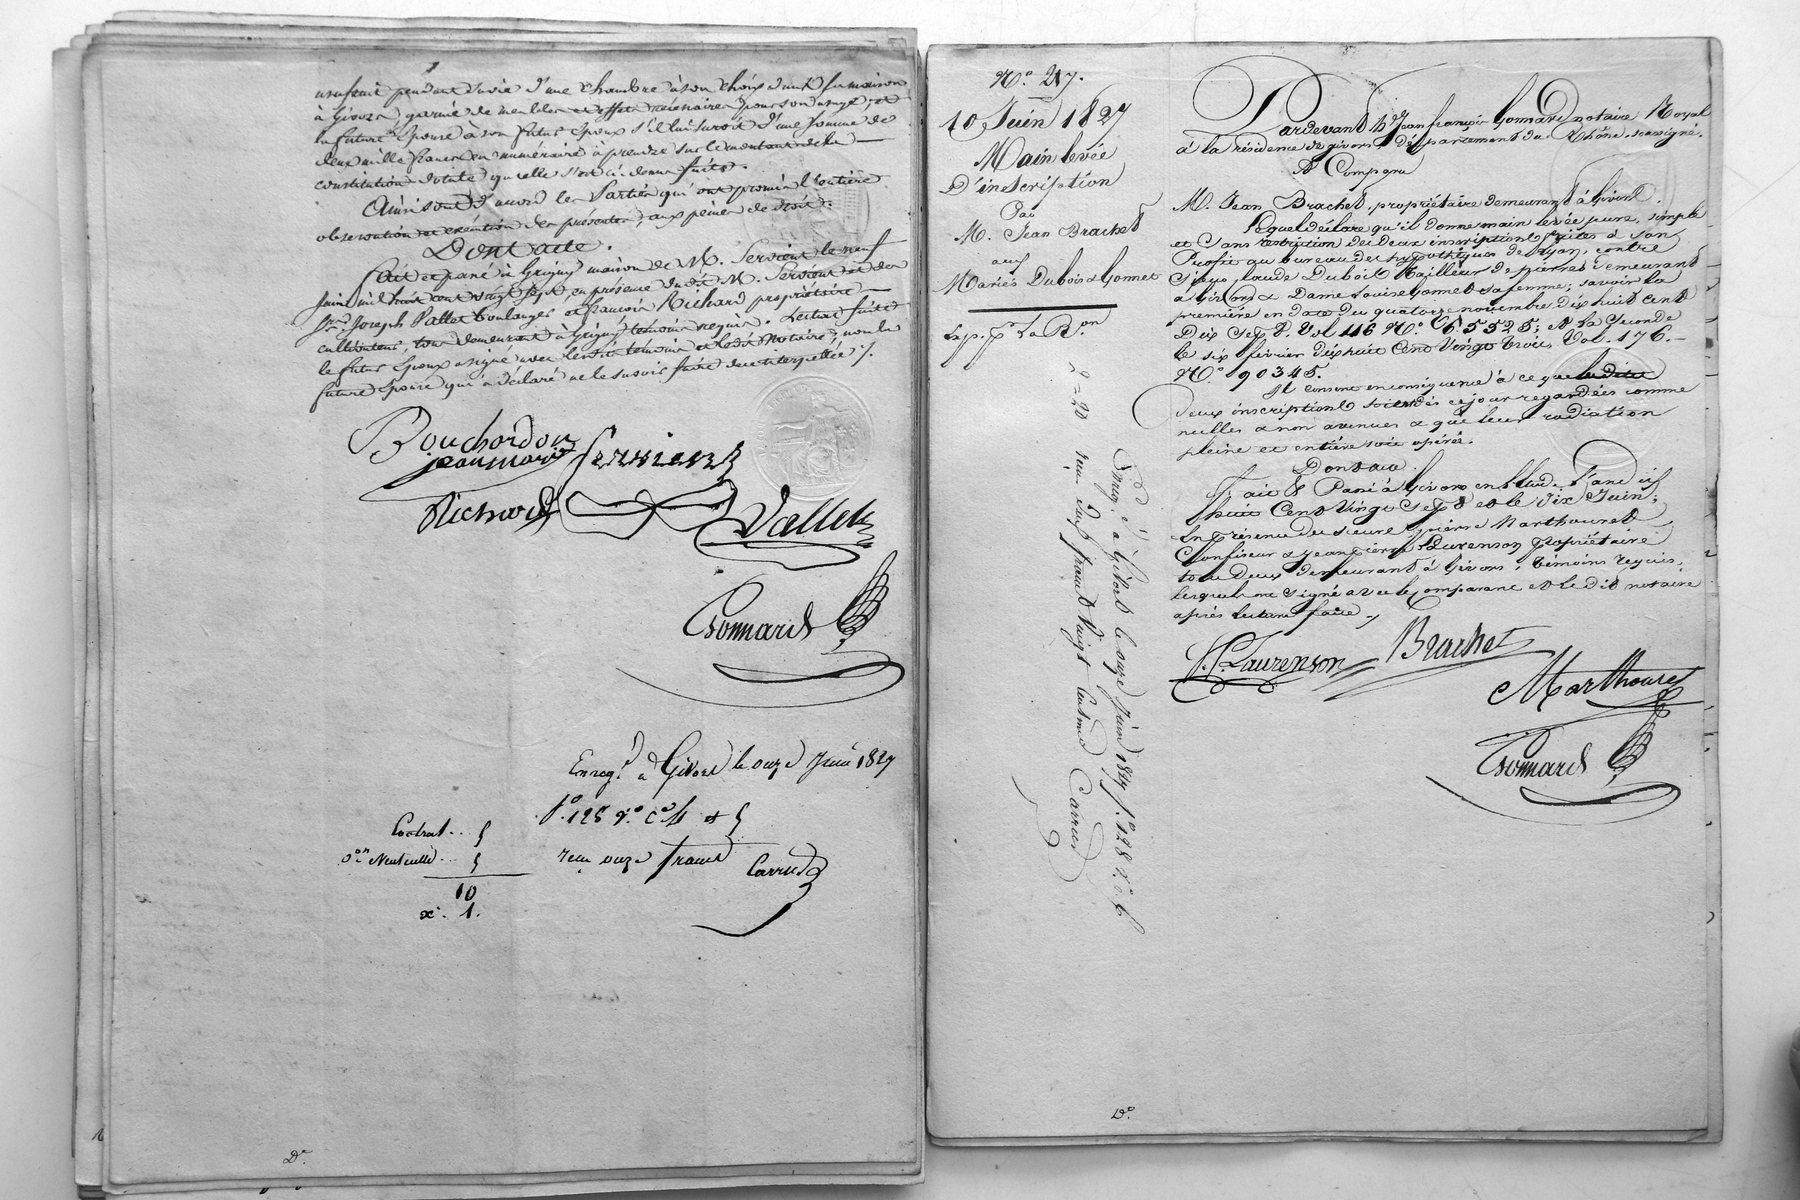 usufruit pendant sa vie d'une chambre à son choix dans sa maison
à Givors, garnie de meubles et effets nécessaires pour son usage, et
la future Epouse à son futur Epoux s'il lui survit d'une somme de
deux mille francs en numéraire à prendre sur le montant de la
constitution dotale qu'elle s'est ci-devant faite.
Ainsi sont d'accord les Parties qui ont promis l'entière
observation et exécution des présentes, aux peines de droit.
Dont acte.
Fait et passé à Grigny maison de M. Servient le neuf
juin mil huit cent vingt sept, en présence du dit M. Servient et des
Srs. Joseph Vallet boulanger et françois Richard propriétaire
cultivateur, tous demeurant à Grigny témoins requis. Lecture faite
le futur Epoux a signé avec lesdits témoins et ledit Notaire, non la
future Epouse qui a déclaré ne le savoir faire de ce interpellée ./.
Bouchardon
jean marie
Servient
Richard
Vallet
Gonnard
Enregt. à Givors le onze Juin 1827
fo. 128 Vo. Co 4 et 5
Contrat .. 5
Don Mutuelle .. 5
reçu onze francs
Carrud
10
x. 1.
De.
No. 217.
10 Juin 1827
Main levée
D'inscription
Par
M. Jean Brachet
aux
Mariés Dubois & Gonnet
Exp. pr. la Ron
2 = 20
Enregt. à Givors le onze juin 1827 fo. 128 Vo. C. 6
reçu deux francs Vingt Centimes Carrud
Pardevant Me. Jean françois Gonnard notaire Royal
à la résidence de givors, département du Rhône, soussigné.
A Comparu
M. Jean Brachet, propriétaire demeurant à Givors.
Lequel déclare qu'il donne main levée pure, simple
et sans restriction des deux inscriptions faites à son
Profit au bureau des hypothèques de Lyon, contre
Sieur Claude Dubois tailleur de pierres demeurant
à Givors & Dame Louise Gonnet sa femme; savoir la
première en date du quatorze novembre dix huit cent
Dix Sept Vol 116 No. 65525; et la Seconde
le six février dix huit Cent Vingt trois, Vol. 176.
No. 90345.
Il consent en conséquence à ce que les dites
deux inscriptions soient dès ce jour regardées comme
nulles & non avenues & que leur radiation
pleine et entière soit opérée.
Dont acte.
fait & Passé à Givors en Etude. L'an dix
huit Cent Vingt Sept et le dix Juin;
En présence des sieurs pierre Marthouret
Confiseur & Jean Pierre Laurenson propriétaire
tous deux demeurant à Givors, témoins requis,
lesquels ont signé avec le comparant et le dit notaire
après lecture faite.
J. P. Laurenson
Brachet
Marthouret
Gonnard
De.